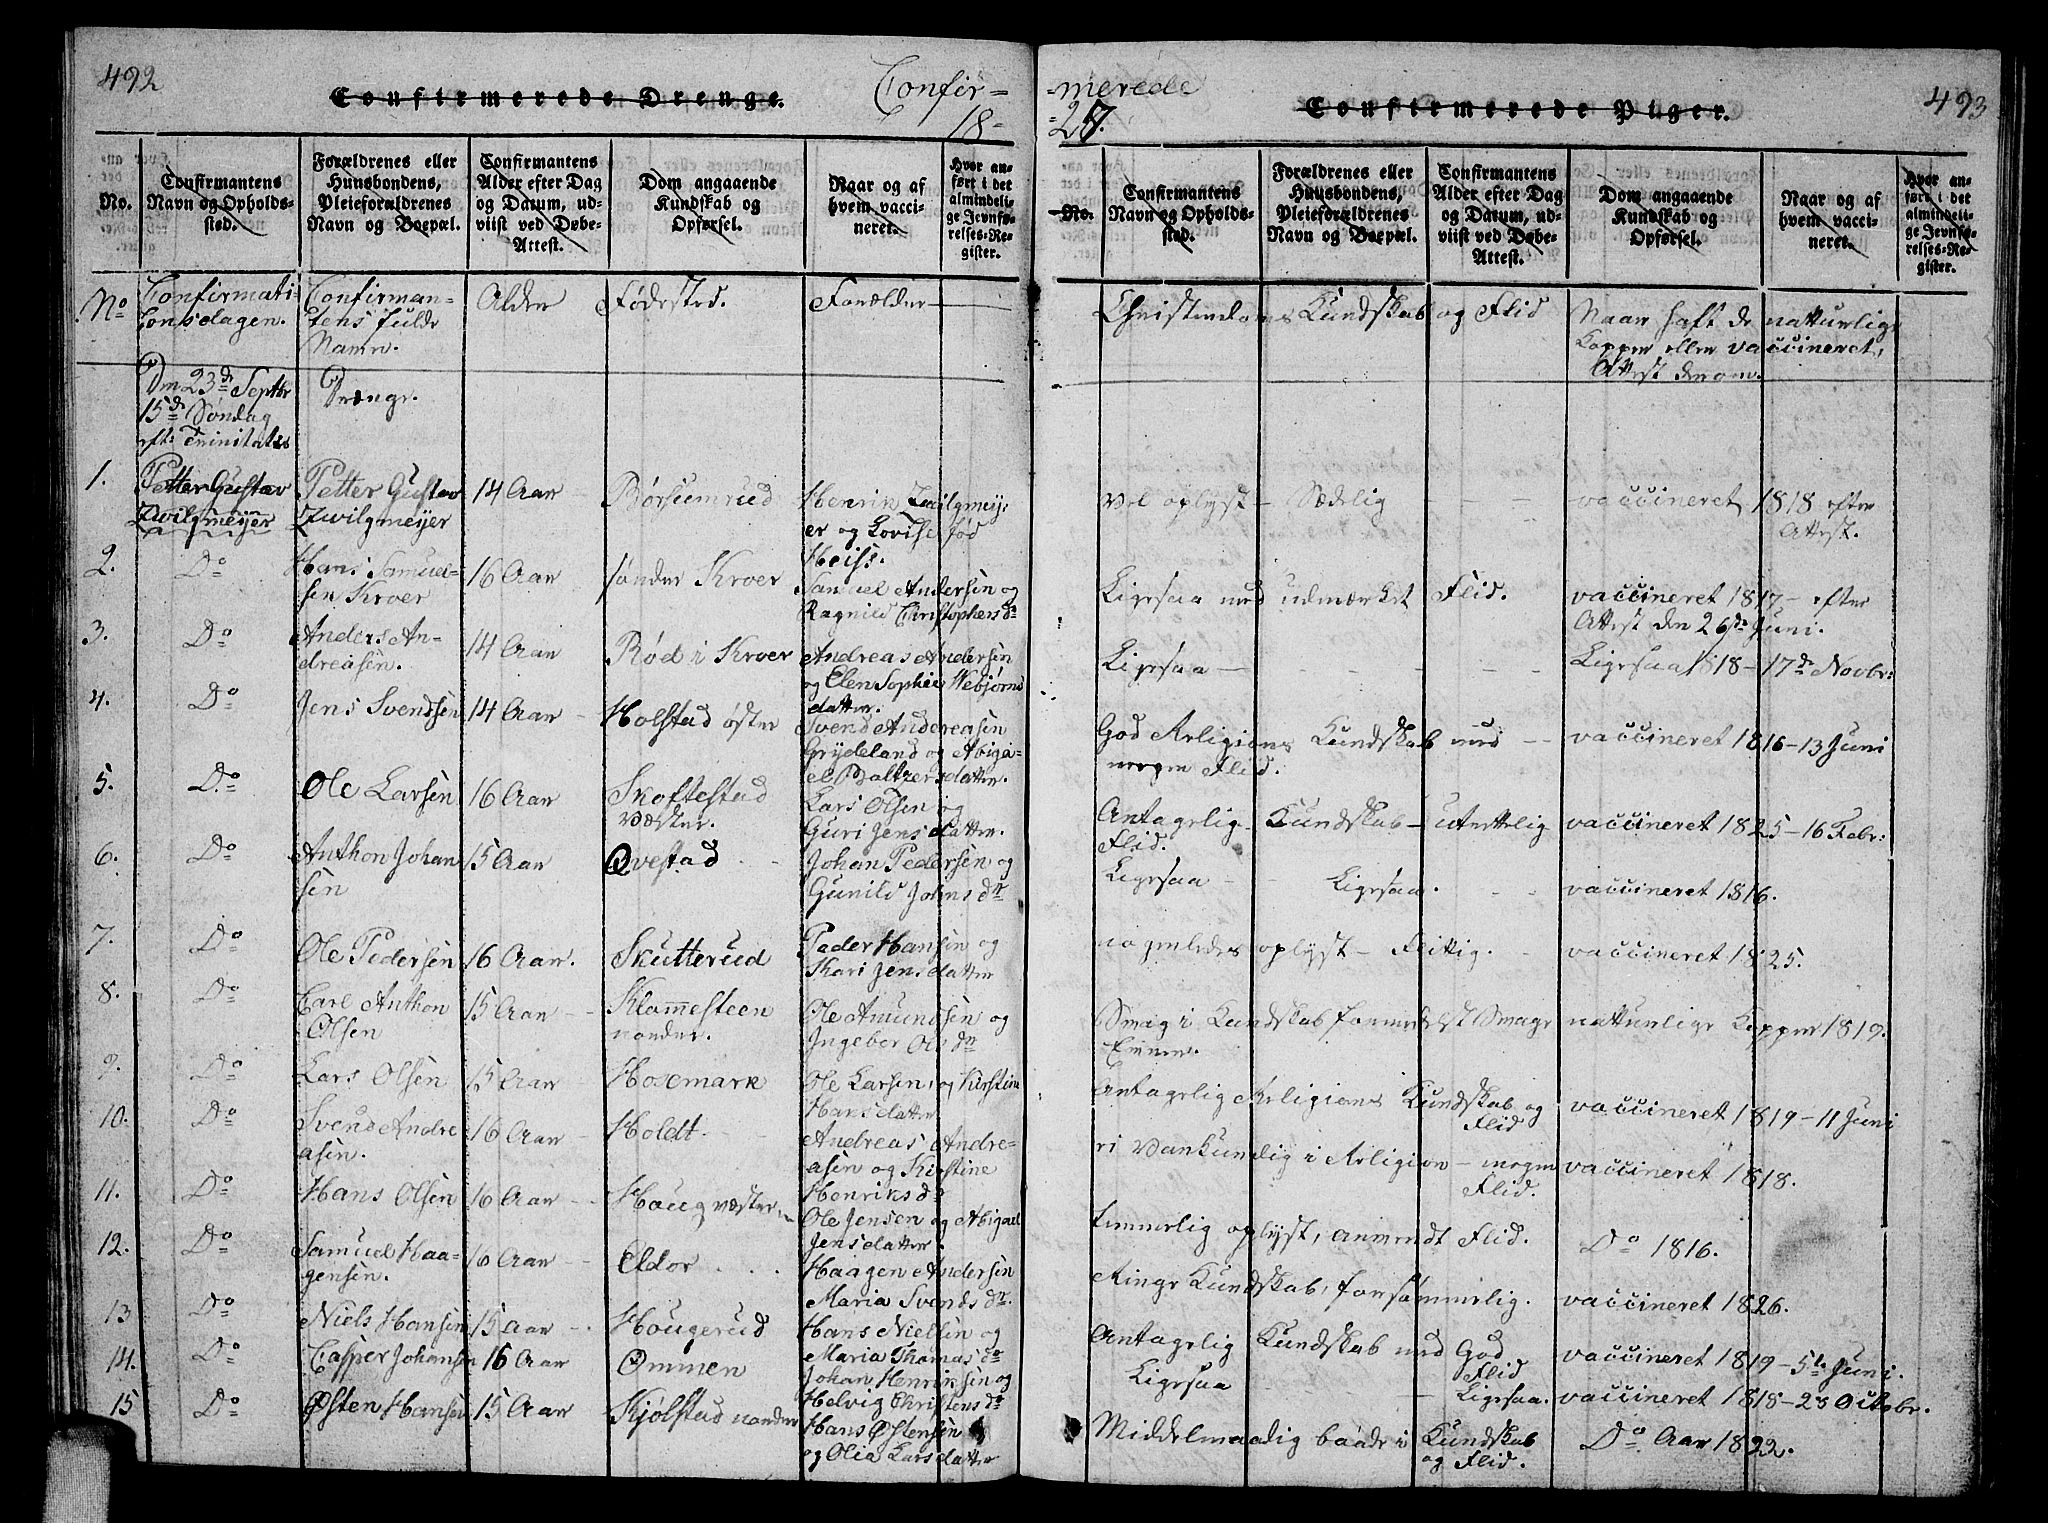 492
Confirmerede Drenge.
Confir-
18-
No.
Confirmantens Navn og Opholdssted.
Forældrenes eller Huusbondens, Pleieforældrenes Navn og Boepæl.
Confirmantens Alder efter Dag og Datum, udviist ved Døbe-Attest.
Dom angaaende Kundskab og Opførsel.
Naar og af hvem vaccineret.
Hvor anført i det almindelige Jevnførelses-Register.
No
Confirmationsdagen.
Confirmantens fulde Navn.
Alder
Fødested.
Forælder
Den 23de Septbr
15de Søndag
eft: Trinitatis
Drænge.
1. Petter Gustav Zwilgmeijer
Petter Gustav Zwilgmeijer
14 Aar
Børsumrud
Henrik Zwilgmeijer og Lovise fød Heiss.
2. Do
Hans Samuelsen Kroer
16 Aar
sønder Kroer
Samuel Andersen og Ragnild Christophersdr
3. Do
Anders Andreasen.
14 Aar
Rød i Kroer
Andreas Andersen og Elen Sophie Webjørnsdatter.
4. Do
Jens Svendsen
14 Aar
Holstad øster
Svend Andreasen Grydeland og Abigael Baltzersdatter.
5. Do
Ole Larsen
16 Aar
Skoftestad væster.
Lars Olsen og Guri Jensdatter.
6. Do
Anthon Johansen
15 Aar
Qvestad
Johan Pedersen og Gunild Johnsdr
7. Do
Ole Pedersen
16 Aar.
Skutterud
Peder Hansen og Kari Jensdatter
8. Do
Carl Anthon Olsen
15 Aar
Klommesteen nordre.
Ole Amundsen og Ingebor Olsdr
9. Do
Lars Olsen
15 Aar
Hosemark
Ole Larsen, og Kirstine Hansdatter
10. Do
Svend Andreasen.
16 Aar
Holdt.
Andreas Andreasen og Kirstine Henriksdr
11. Do
Hans Olsen
16 Aar
Houg væstre
Ole Jensen og Abigael Jensdatter.
12. Do
Samuel Haagensen.
16 Aar
Eldor
Haagen Andersen Maria Svendsdr.
13 Do
Niels Hansen
15 Aar
Hougerud
Hans Nielsen og Maria Thomasdr
14. Do
Casper Johansen
16 Aar
Ommen
Johan Henriksen og Helvig Christensdr
15 Do
Østen Hansen
15 Aar
Kjølstad nordre
Hans Østensen og Olia Larsdatter
-merede
-27.
Confirmerede Piger.
493
No.
Confirmantens Navn og Opholdssted.
Forældrenes eller Huusbondens, Pleieforældrenes Navn og Boepæl.
Confirmantens Alder efter Dag og Datum, udviist ved Døbe-Attest.
Dom angaaende Kundskab og Opførsel.
Naar og af hvem vaccineret.
Hvor anført i det almindelige Jevnførelses-Register.
Christendoms Kundskab og Flid
Naar haft de naturlige Kopper eller vaccineret, Attest derom.
Vel oplyst – Sædelig
vaccineret 1818 efter Attest.
Ligesaa med udmærket Flid.
vaccineret 1817 – efter Attest den 26de Juni.
Ligesaa –
Ligesaa 1818 – 17de Novbr:
God Religions Kundskab med megen Flid.
vaccineret 1816 – 13 Juni
Antagelig Kundskab – utrættelig Flid.
vaccineret 1825 – 16 Febr:
Ligesaa – Ligesaa.
vaccineret 1816.
nogenledes oplyst – Flittig.
vaccineret 1825.
Smag i Kundskab
naturlige Kopper 1819.
Antagelig Religions Kundskab og Flid
vaccineret 1819 – 11 Juni
ei Vankundig i Religion – megen Flid.
vaccineret 1818.
temmelig oplyst, anvendt Flid.
Do 1816.
Ringe Kundskab, forsømmelig.
vaccineret 1826.
Antagelig Kundskab med God Flid
vaccineret 1819 – 5te Juni.
Ligesaa – Ligesaa.
vaccineret 1818 – 28 Octobr.
Middelmaadig baade i Kundskab og Flid.
Do Aar 1822.